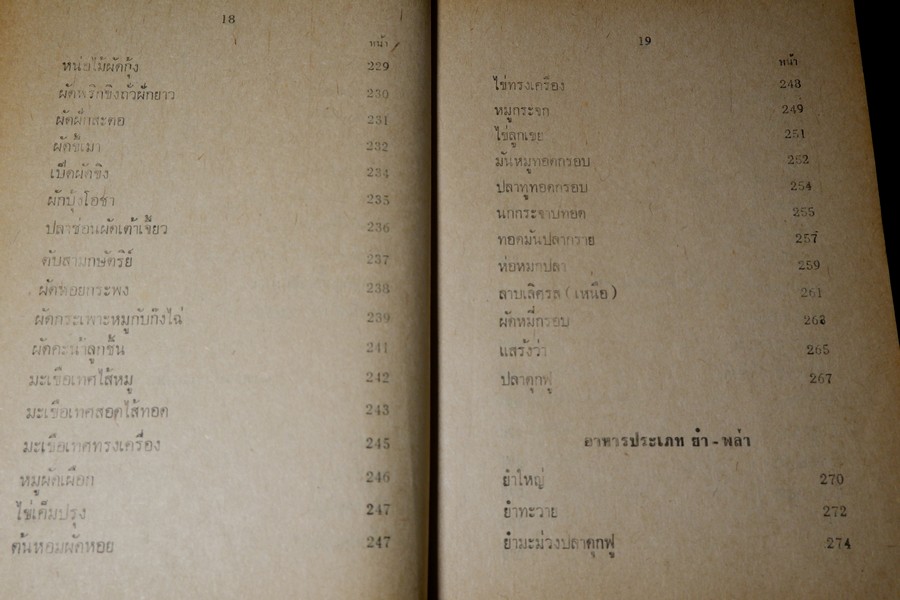 18
หน้า
หน่อไม้ผัดกุ้ง 229
ผัดพริกขิงถั่วฝักยาว 230
ผัดฝักสะตอ 231
ผัดขี้เมา 232
เป็ดผัดขิง 234
ผักบุ้งโอชา 235
ปลาช่อนผัดเต้าเจี้ยว 236
ตับสามกษัตริย์ 237
ผัดหอยกระพง 238
ผัดกระเพาะหมูกับกึงไฉ่ 239
ผัดคะน้าลูกชิ้น 241
มะเขือเทศไส้หมู 242
มะเขือเทศสอดไส้ทอด 243
มะเขือเทศทรงเครื่อง 245
หมูผัดเผือก 246
ไข่เค็มปรุง 247
ต้นหอมผัดหอย 247
19
หน้า
ไข่ทรงเครื่อง 248
หมูกระจก 249
ไข่ลูกเขย 251
มันหมูทอดกรอบ 252
ปลาทูทอดกรอบ 254
นกกระจาบทอด 255
ทอดมันปลากราย 257
ห่อหมกปลา 259
ลาบเลิศรส (เหนือ) 261
ผัดหมี่กรอบ 263
แสร้งว่า 265
ปลาดุกฟู 267
อาหารประเภท ยำ - พล่า
ยำใหญ่ 270
ยำทะวาย 272
ยำมะม่วงปลาดุกฟู 274